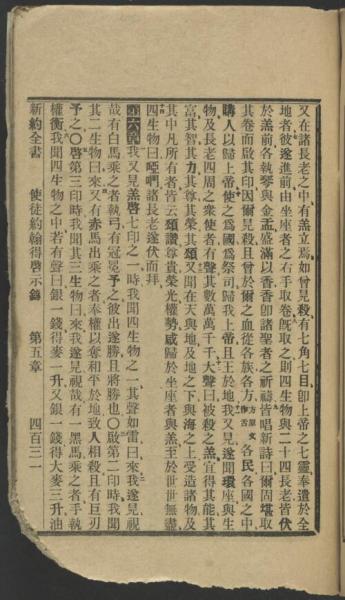 又在諸長老之中有羔立焉如曾見殺有七角七目卽上帝之七靈奉遣於全
地者彼遂進前由坐座者之右手取卷旣取之則四生物與二十四長老皆伏
於羔前各執琴與金盂盛滿以香香卽諸聖者之祈禱皆唱新詩曰爾固堪取
其卷而啟其印因爾見殺且曾於爾之血從各族各方方原文作舌各民各國之中
購人以歸上帝使之爲國爲祭司歸我上帝且王於地我又見遂聞環座與生
物及長老四周之衆使者有聲其數萬萬千千大聲曰被殺之羔宜得其能其
富其智其力其尊其榮其頌又聞在天與地及地之下與海之上受造諸物及
其中凡所有者皆云頌讚尊貴榮光權勢咸歸於坐座者與羔至於世世無盡
四生物曰啞們諸長老遂伏而拜
第六章 我又見羔啓七印之一時我聞四生物之一其聲如雷曰來我遂見視
哉有白馬乘之者執弓有冠冕予之彼出遂勝且將勝也〇啟第二印時我聞
其二生物曰來又有赤馬出乘之者奉權以奪和平於地致人相殺且有巨刃
予之〇啓第三印時我聞其三生物曰來我遂見視哉有一黑馬乘之者手執
權衡我聞四生物之中若有聲曰銀一錢得麥一升又銀一錢得大麥三升油
新約全書 使徒約翰得啓示錄 第五章 四百三一